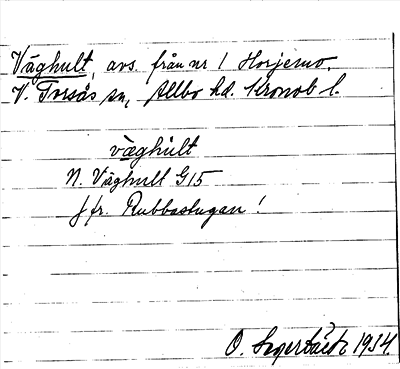 Väghult, avs. från nr 1 Horjemo.
V. Torsås sn, Allbo hd. Kronob l.
väghult
N. Väghult G15
Jfr. Rubbastugan!
O. 1934.